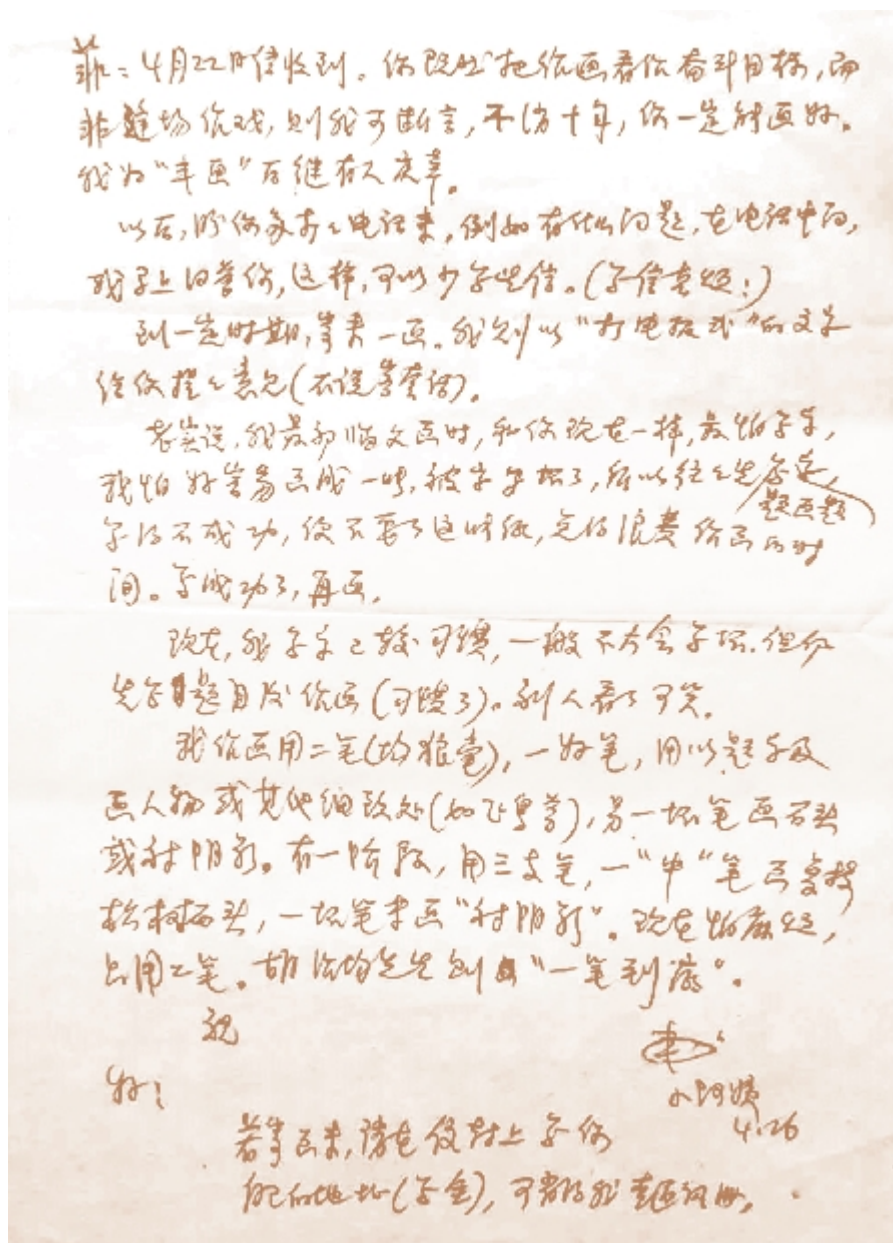 菲：4月22日信收到。你既然把作画看作奋斗目标，而
非逢场作戏，则我可断言，不消十年，你一定能画好。
我为“丰画”后继有人庆幸。
以后，盼你多打々电话来，例如有什么问题，在电话中问，
我马上回答你，这样，可以少写些信。（写信真烦！）
到一定时期，寄来一画。我则以“打电报式”的文字
给你提々意见（不说客套话）。
老实说，我最初临父画时，和你现在一样，最怕写字，
我怕好容易画成一时，被字写坏了，所以往々先写字，
题画题
写得不成功，便不要了这张纸，免得浪费作画的时
间。写成功了，再画。
现在，我写字已较习惯，一般不大会写坏。但仍
先写题目后作画（习惯了）。别人看了可笑。
我作画用二笔（均狼毫），一好笔，用以题字及
画人物或其他细致处（如飞鸟等），另一坏笔画石头
或衬阴影。有一阶段，用三支笔，一“中”笔画
松树石头，一坏笔来画“衬阴影”。现在怕麻烦，
只用二笔。胡治均先生则“一笔到底”。
祝
好！
小阿姨
4.26
若寄画来，请在信封上写你
的地址（写全），可省得我查通讯册。